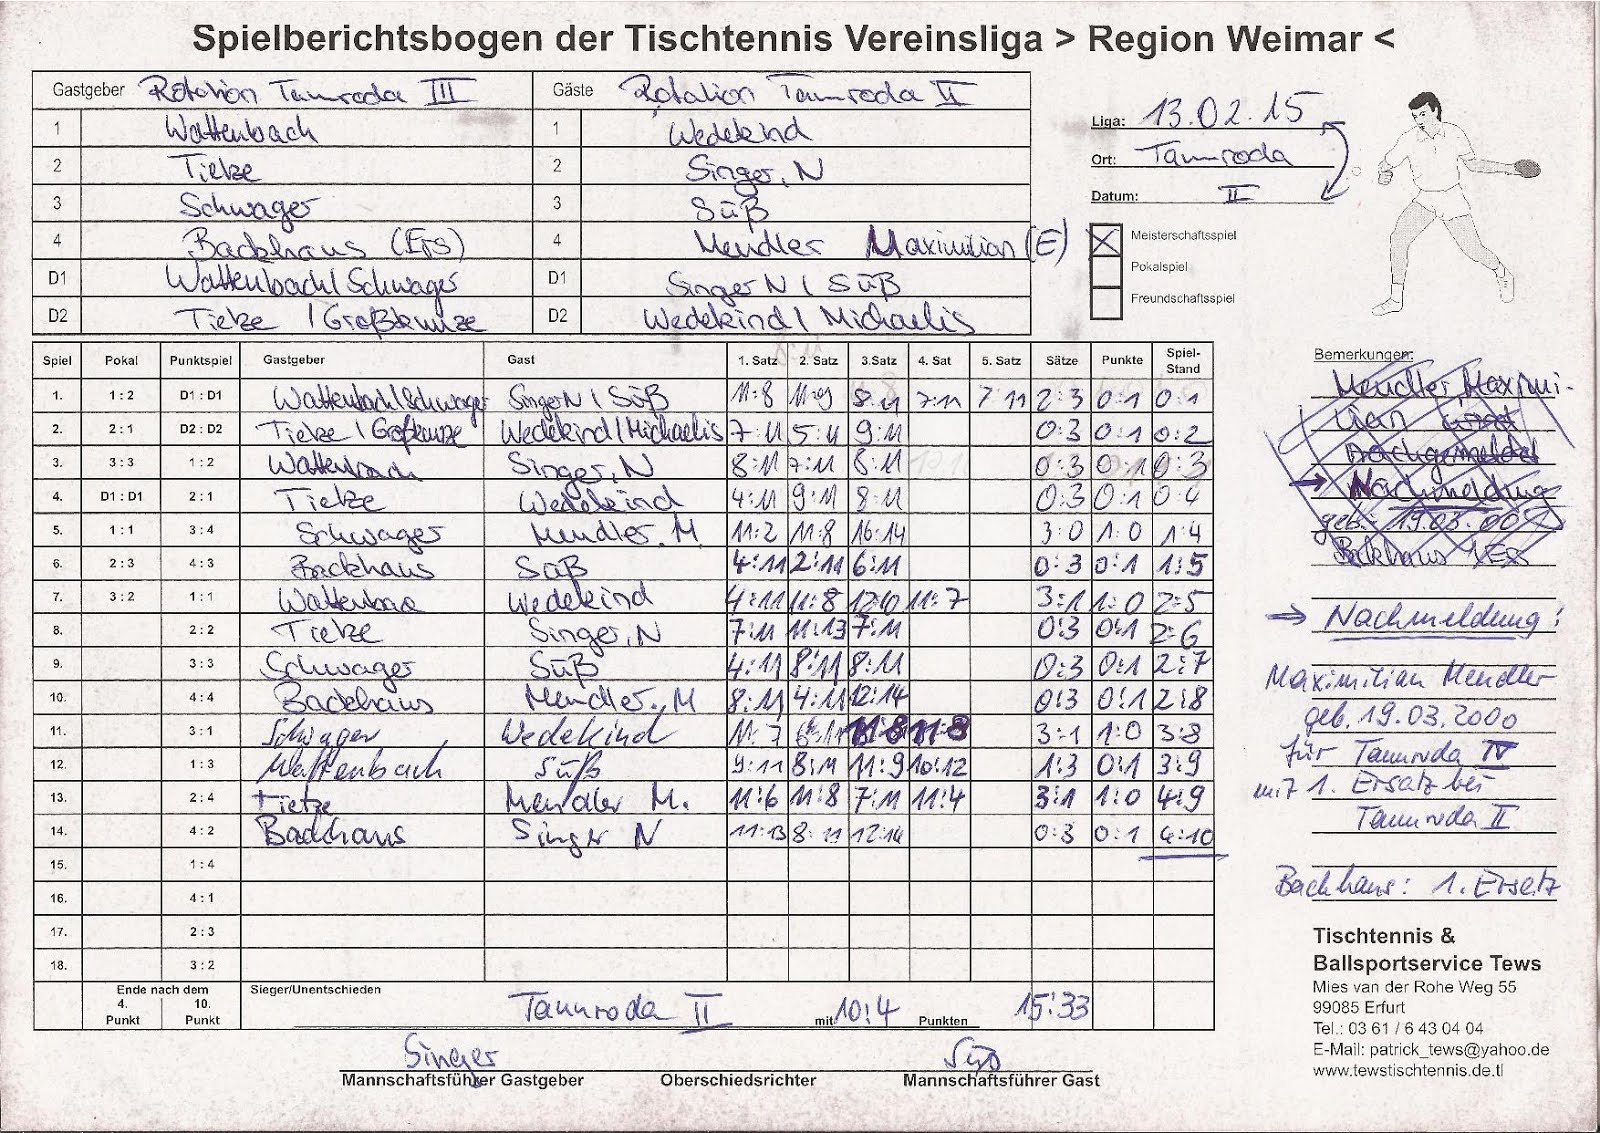 Spielberichtsbogen der Tischtennis Vereinsliga > Region Weimar <
Gastgeber Rotation Tannroda III Gäste Rotation Tannroda II
1 Wattenbach 1 Wedekind
2 Tietze 2 Singer, N
3 Schwager 3 Süß
4 Backhaus (Ers) 4 Mendler Maximilian (E)
D1 Wattenbach/Schwager D1 Singer N / Süß
D2 Tietze / Großkunze D2 Wedekind / Michaelis
Liga: 13.02.15
Ort: Tannroda
Datum: II
Meisterschaftsspiel
Pokalspiel
Freundschaftsspiel
Spiel Pokal Punktspiel Gastgeber Gast 1. Satz 2. Satz 3.Satz 4. Sat 5. Satz Sätze Punkte Spiel-Stand
1. 1 : 2 D1 : D1 Wattenbach/Schwager Singer N / Süß 11:8 11:9 8:11 7:11 7 11 2:3 0:1 0:1
2. 2 : 1 D2 : D2 Tietze / Großkunze Wedekind/Michaelis 7:11 5:11 9:11 0:3 0:1 0:2
3. 3 : 3 1 : 2 Wattenbach Singer, N 8:11 7:11 8:11 0:3 0:1 0:3
4. D1 : D1 2 : 1 Tietze Wedekind 4:11 9:11 8:11 0:3 0:1 0:4
5. 1 : 1 3 : 4 Schwager Mendler. M 11:2 11:8 16:14 3:0 1:0 1:4
6. 2 : 3 4 : 3 Backhaus Süß 4:11 2:11 6:11 0:3 0:1 1:5
7. 3 : 2 1 : 1 Wedekind 4:11 11:8 12:10 11:7 3:1 1:0 2:5
8. 2 : 2 Tietze Singer, N 7:11 11:13 7:11 0:3 0:1 2:6
9. 3 : 3 Schwager Süß 4:11 8:11 8:11 0:3 0:1 2:7
10. 4 : 4 Backhaus Mendler, M 8:11 4:11 12:14 0:3 0:1 2:8
11. 3 : 1 Schwager Wedekind 11:7 11:8 11:8 3:1 1:0 3:8
12. 1 : 3 Wattenbach Süß 9:11 8:11 11:9 10:12 1:3 0:1 3:9
13. 2 : 4 Tietze Mendler M. 11:6 11:8 7:11 11:4 3:1 1:0 4:9
14. 4 : 2 Backhaus Singer N 11:13 8:11 12:14 0:3 0:1 4:10
15. 1 : 4
16. 4 : 1
17. 2 : 3
18. 3 : 2
Ende nach dem
4. Punkt 10. Punkt
Sieger/Unentschieden Tannroda II mit 10:4 Punkten 15:33
Singer Süß
Mannschaftsführer Gastgeber Oberschiedsrichter Mannschaftsführer Gast
Bemerkungen:
Mendler, Maximi-
lian
nachgemeldet
→ Nachmeldung
geb.: 19.03.00
Backhaus 1 Ers
→ Nachmeldung!
Maximilian Mendler
geb. 19.03.2000
für Tannroda IV
mit 1. Ersatz bei
Tannroda II
Backhaus: 1. Ersatz
Tischtennis &
Ballsportservice Tews
Mies van der Rohe Weg 55
99085 Erfurt
Tel.: 03 61 / 6 43 04 04
E-Mail: patrick_tews@yahoo.de
www.tewstischtennis.de.tl